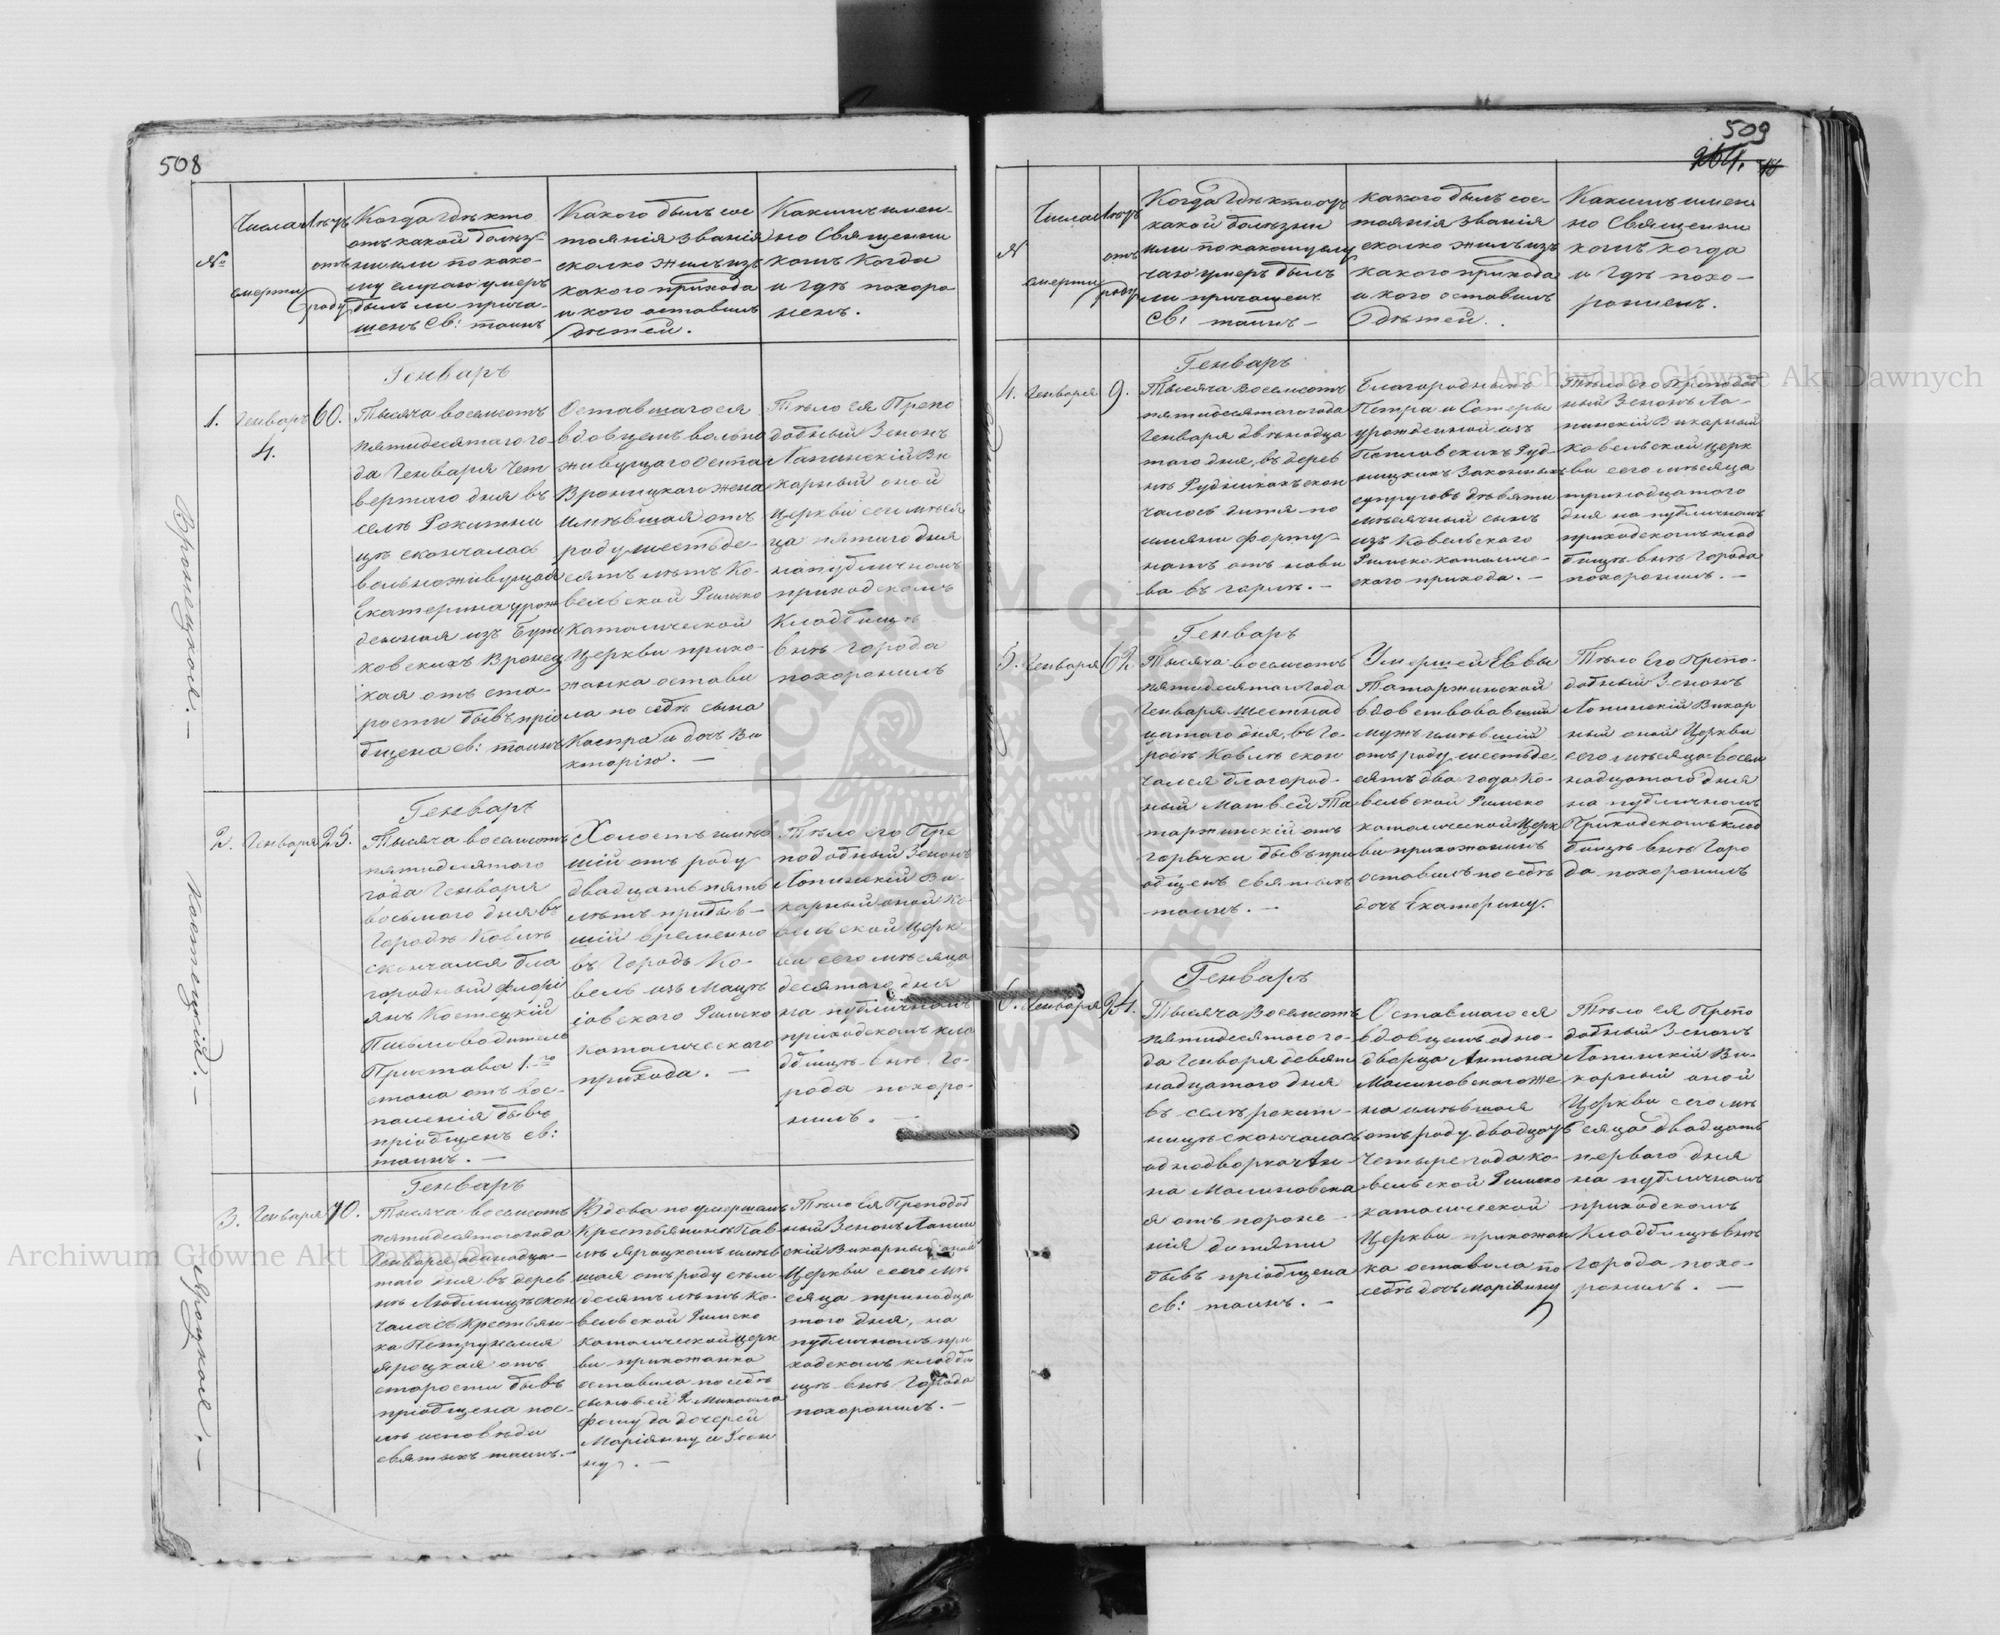 508
№
Числа
смерти
Лѣтъ
отъ
роду
Когда гдѣ кто
отъ какой болѣз-
ни или по како-
му случаю умеръ
былъ ли прича-
щенъ Св: таинъ
Какого былъ сос
тоянія званія
сколко жилъ изъ
какого прихода
и кого оставилъ
дѣтей.
Какимъ имен-
но Священни
комъ когда
и гдѣ похоро
ненъ.
Вронецкая. —
1.
Генварь
4.
60.
Генварь
Тысяча восемсотъ
пятидесятаго го-
да Генваря чет
вертаго дня въ
селѣ Рокитни
цѣ скончалась
вольноживущая
Екатерина урож
денная изъ
ковскихъ Вронец
кая отъ ста-
рости бывъ пріо
бщена св: таинъ
Оставшагося
вдовцемъ вольно
живущаго Оста
Вронецкаго жена
имѣвшая отъ
роду шестьде-
сятъ лѣтъ Ко-
вельской Римско
Католической
Церкви прихо-
жанка остави
ла по себѣ сына
Каспра и дочь Ви
кторію. —
Тѣло ея Препо
добный Зенонъ
Лапинскій Ви
карный оной
Церкви сего мѣся
ца пятаго дня
на публичномъ
приходскомъ
Кладбищѣ
внѣ города
похоронилъ
Костецкій. —
2.
Генваря
25.
Генварь
Тысяча восемсотъ
пятидесятого
года Генваря
восьмого дня въ
городѣ Ковлѣ
скончался бла
городный Флорі
янъ Костецкій
Письмоводитель
Пристава 1.го
стана отъ вос-
паленія бывъ
пріобщенъ св:
таинъ. —
Холостъ имѣв
шій отъ роду
двадцать пять
лѣтъ прибыв-
шій временно
въ городъ Ко-
вель изъ Мацѣ
іовского Римско
католического
прихода. —
Тѣло его Пре
подобный Зенонъ
Лапинскій Ви-
карный оной Ко-
вельской Церк
ви сего мѣсяца
десятаго дня
на публичномъ
приходскомъ кла
дбищѣ внѣ го-
рода похоро-
нилъ. —
Яроцкая. —
3.
Генваря
70.
Генварь
Тысяча восемсотъ
пятидесятаго года
Генваря
таго дня въ дерев
нѣ Любланцѣ скон
чалась крестьян-
ка Петрунеля
Яроцкая отъ
старости бывъ
пріобщена пос-
лѣ исповѣди
святыхъ таинъ. —
Вдова по умершемъ
Крестьянинѣ Пав
лѣ Яроцкомъ имѣв
шая отъ роду семь
десятъ лѣтъ Ко-
вельской Римско
католической церк
ви прихожанка
оставила по себѣ
сыновей Михаила
Фому да дочерей
Маріянну и
ну. —
Тѣло ея Преподоб
ный Зенонъ Лапин
скій Викарный оной
Церкви сего мѣ
сяца тринадца
того дня, на
публичномъ при
ходскомъ кладби
щѣ внѣ города
похоронилъ. —
509
264.
N
Числа
смерти
Лѣтъ
отъ
роду
Когда гдѣ кто отъ
какой болѣзни
или по какому слу
чаю умеръ былъ
ли причащенъ
Св: таинъ —
какого былъ сос-
тоянія званія
сколко жилъ изъ
какого прихода
и кого оставилъ
дѣтей.
Какимъ имен
но Священни
комъ когда
и гдѣ похо-
роненъ.
4.
Генваря
9.
Генварь
Тысяча восемсотъ
пятидесятаго года
Генваря двѣнадца
таго дня, въ дерев
нѣ Рудникахъ скон
чалось дитя по
имяни Форту-
натъ отъ нови
ва въ горлѣ. —
Благородныхъ
Петра и
урожденной изъ
Рудницкихъ Законныхъ
супруговъ девяти
мѣсячный сынъ
изъ Ковельского
Римско католиче-
ского прихода. —
Тѣло его Преподоб
ный Зенонъ Ла-
пинскій Викарный
Ковельской церк
ви сего мѣсяца
тринадцатого
дня на публичномъ
приходскомъ клад
бищѣ внѣ города
похоронилъ. —
5.
Генваря
62
Генварь
Тысяча восемсотъ
пятидесятаго года
Генваря шестнад
цатого дня, въ го-
родѣ Ковлѣ скон
чался благород-
ный Матвей Та
таржинскій отъ
горячки бывъ при
общенъ святыхъ
таинъ. —
Умершей Еввы
Татаржинской
вдовствовавшій
мужъ имѣвшій
отъ роду шестьде
сятъ два года Ко-
вельской Римско
католической Церк
ви прихожанинъ
оставилъ по себѣ
дочь Екатерину.
Тѣло Его Препо-
добный Зенонъ
Лапинскій Викар
ный оной Церкви
сего мѣсяца восем
надцатого дня
на публичномъ
Приходскомъ клад
бищѣ внѣ горо
да похоронилъ
6.
Генваря
24.
Генварь
Тысяча Восемсотъ
пятидесятого го-
да Генваря девят
надцатого дня
въ селѣ рокит-
ницѣ скончалась
однодворка Ан
на Малиновска
я отъ пороже-
нія дитяти
бывъ пріобщена
св: таинъ. —
Оставшагося
вдовцемъ одно-
дворца Антона
Малиновского же
на имѣвшая
отъ роду двадцать
четыре года Ко-
вельской Римско
католической
Церкви прихожан
ка оставила по
себѣ дочь Маріянну
Тѣло ея Препо
добный Зенонъ
Лапинскій Ви-
карный оной
Церкви сего мѣ
сяца двадцать
первого дня
на публичномъ
приходскомъ
Кладбищѣ внѣ
города похо-
ронилъ. —
Archiwum Główne Akt Dawnych
Archiwum Główne Akt Dawnych